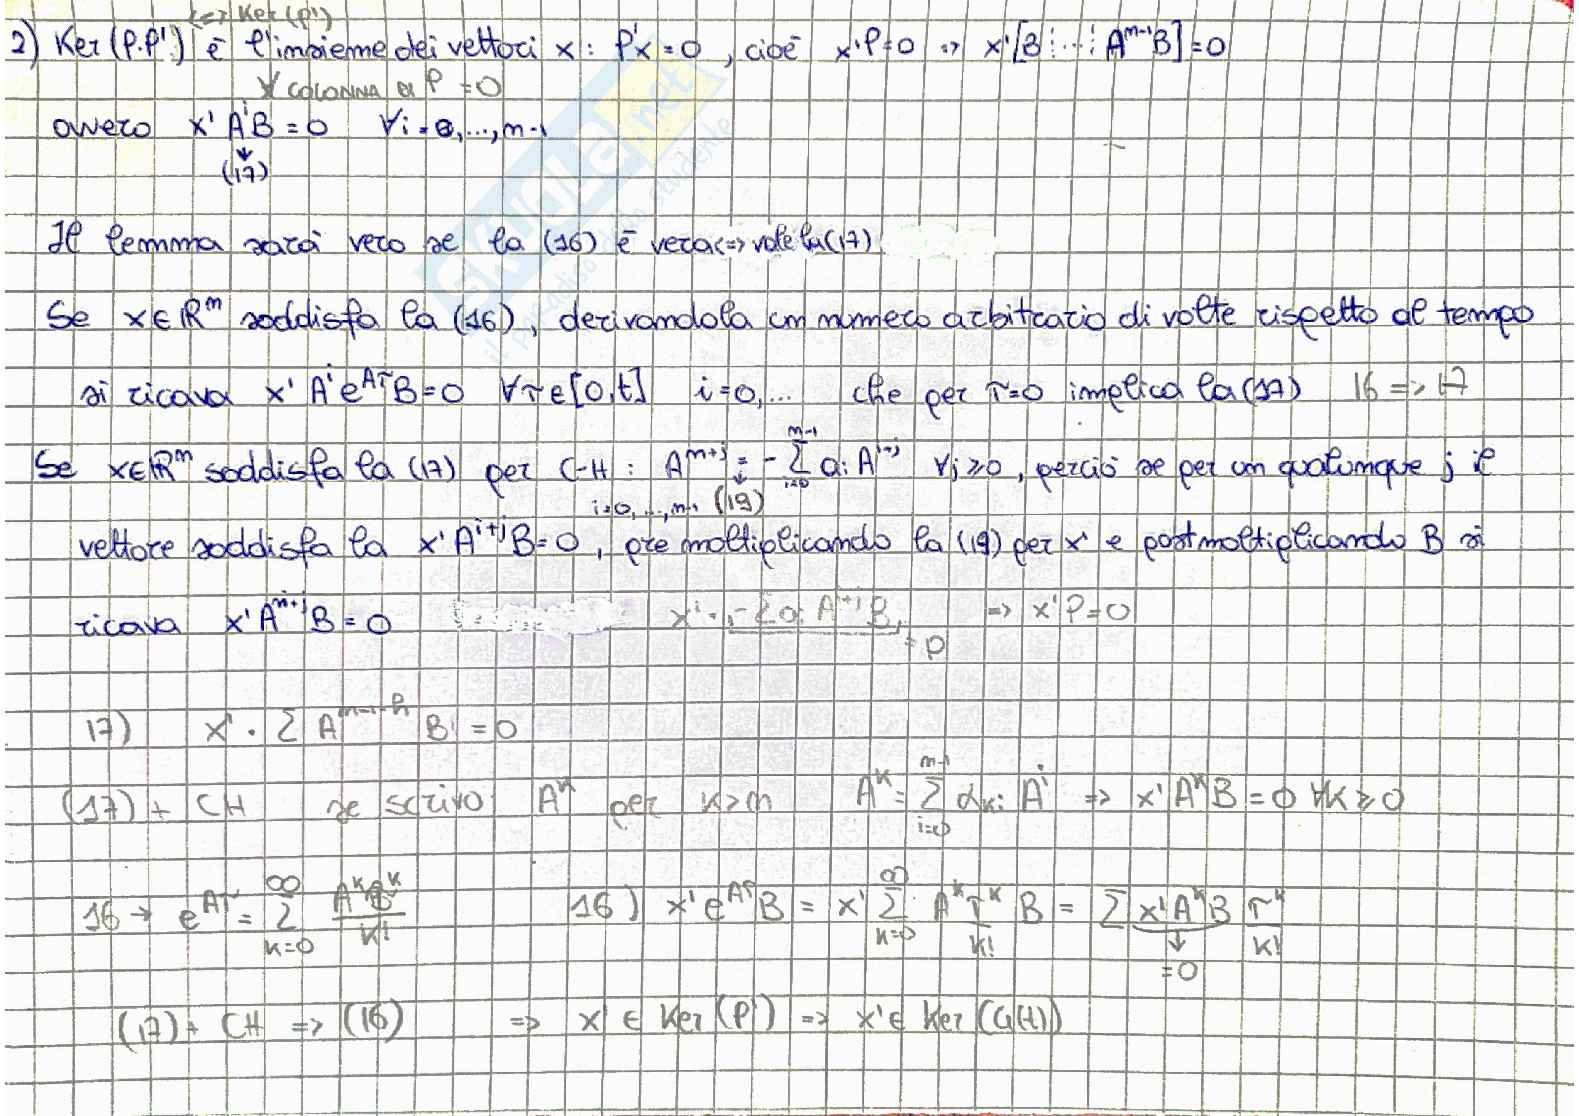 (<=> Ker(P')
2) Ker(P·P') è l'insieme dei vettori x : P'x = 0 , cioè x'P=0 => x'[B ⋮ ⋯ ⋮ A^{m-1}B] = 0
∀ COLONNA di P = 0
ovvero x' A^i B = 0 ∀i = 0,...,m-1
↓
(17)
Il lemma sarà vero se la (16) è vera <=> vale la (17)
Se x∈ℝ^m soddisfa la (16), derivandola un numero arbitrario di volte rispetto al tempo
si ricava x' A^i e^{Aτ} B = 0 ∀τ∈[0,t] i=0,... che per τ=0 implica la (17) 16 => 17
Se x∈ℝ^m soddisfa la (17) per C-H : A^{m+j} = - Σ_{i=0}^{m-1} a_i A^{i+j} ∀j≥0, perciò se per un qualunque j il
i=0,...,m-1 (19)
vettore soddisfa la x' A^{i+j} B = 0, pre moltiplicando la (19) per x' e postmoltiplicando B si
ricava x' A^{m+j} B = 0 x' · - Σ a_i A^{i+j} B, => x'P=0
= 0
17) x' · Σ A^{m-1-h} B = 0
(17) + CH se scrivo A^k per k>m A^k = Σ_{i=0}^{m-1} α_{ki} A^i => x'A^kB = 0 ∀k≥0
16 → e^{Aτ} = Σ_{k=0}^{∞} A^k τ^k / k! 16) x' e^{Aτ} B = x' Σ_{k=0}^{∞} A^k τ^k / k! B = Σ x'A^kB τ^k / k!
↓
=0
(17) + CH => (16) => x' ∈ Ker(P') => x' ∈ Ker(G(t))
SKUOLA.net
il paradiso dello studente